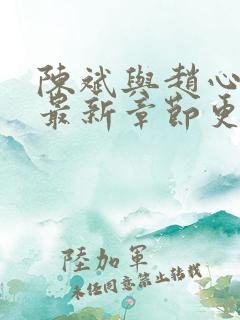 陳斌與趙心
最新章節更
陸加軍
未經同意禁止轉載